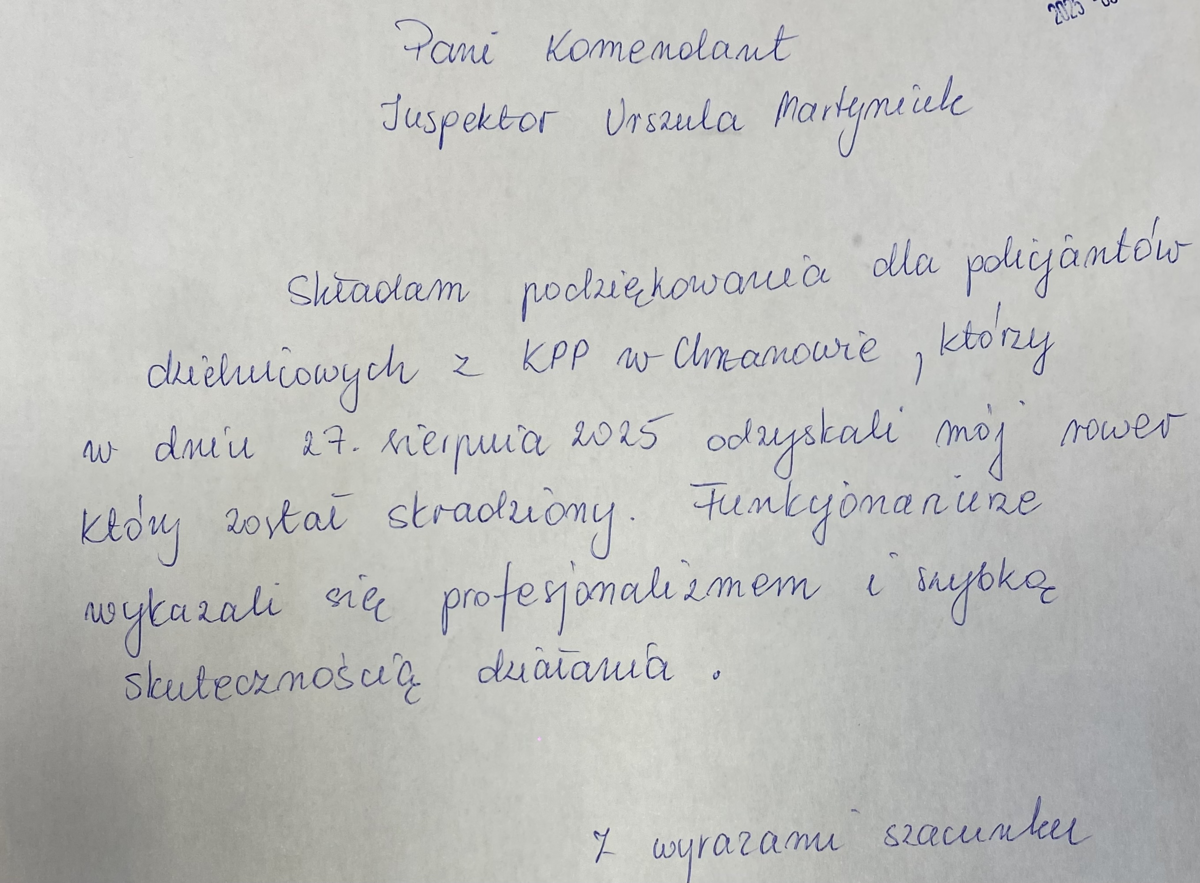 2025
Pani Komendant
Inspektor Urszula Martyniuk
Składam podziękowania dla policjantów
dzielnicowych z KPP w Chrzanowie, którzy
w dniu 27. sierpnia 2025 odzyskali mój rower
który został skradziony. Funkcjonariusze
wykazali się profesjonalizmem i szybką
skutecznością działania.
Z wyrazami szacunku